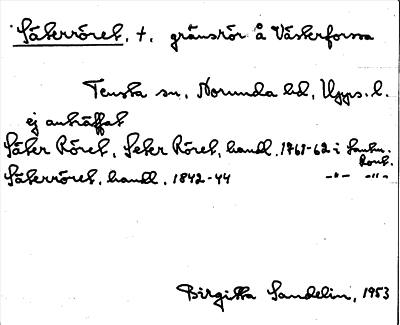 Säterröret, +, gränsrör å Västerforssa
Tensta sn, Norunda hd, Upps. l.
ej anträffat
Säter Röret, Seter Röret, handl. 1761-62 i Lantm.
kont.
Säterröret, handl. 1842-44 -"- -"-
Birgitta Sandelin, 1953